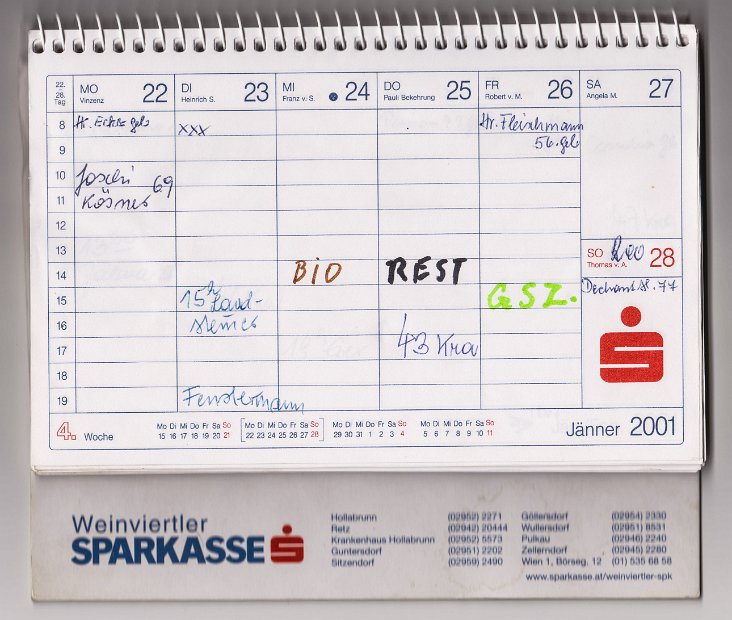 22.
28.
Tag
MO 22
Vinzenz
DI 23
Heinrich S.
MI 24
Franz v. S.
DO 25
Pauli Bekehrung
FR 26
Robert v. M.
SA 27
Angela M.
8
xxx
Hr. Fleischmann
9
56. geb
10
69
11
12
13
SO 28
Thomas v. A.
14
BIO
REST
15
15h Land-
GSZ.
16
17
43 Kra
18
19
Fenstermann
4. Woche
Mo Di Mi Do Fr Sa So Mo Di Mi Do Fr Sa So Mo Di Mi Do Fr Sa So Mo Di Mi Do Fr Sa So
15 16 17 18 19 20 21 22 23 24 25 26 27 28 29 30 31 1 2 3 4 5 6 7 8 9 10 11
Jänner 2001
Weinviertler
SPARKASSE
Hollabrunn (02952) 2271
Retz (02942) 20444
Krankenhaus Hollabrunn (02952) 5573
Guntersdorf (02951) 2202
Sitzendorf (02959) 2490
Göllersdorf (02954) 2330
Wullersdorf (02951) 8531
Pulkau (02946) 2240
Zellerndorf (02945) 2280
Wien 1, Börseg. 12 (01) 535 68 58
www.sparkasse.at/weinviertler-spk